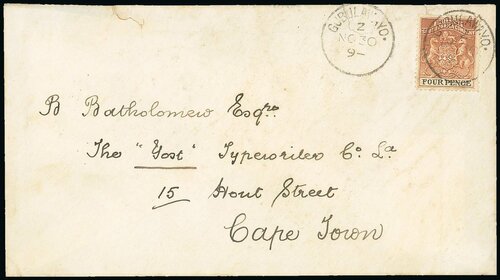 GUBULAWAYO.
2
NO 30
9-
GUBULAWAYO.
FOUR PENCE
B Bartholomew Esqre
The "Yost" Typewriter Co. Ld
15 Hout Street
Cape Town